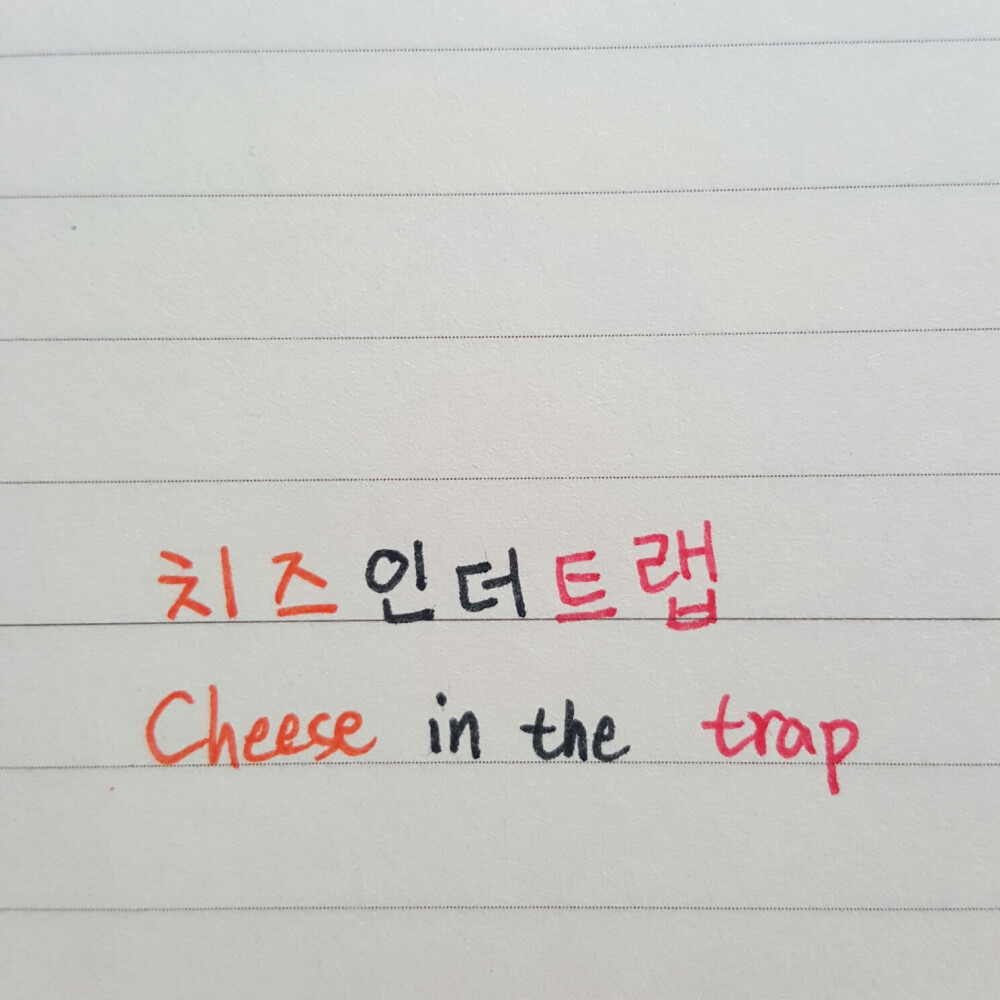 치즈인더트랩
Cheese in the trap